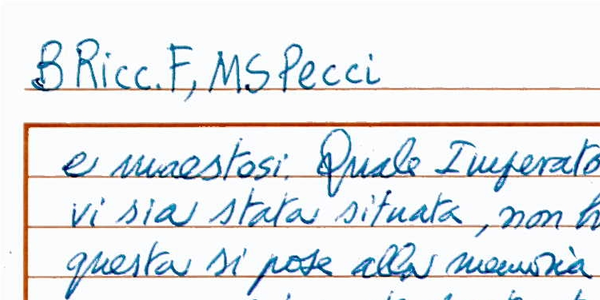 B Ricc. F, MS Pecci
e maestosi. Quale Imperato
vi sia stata situata, non h
questa si pose alla memoria